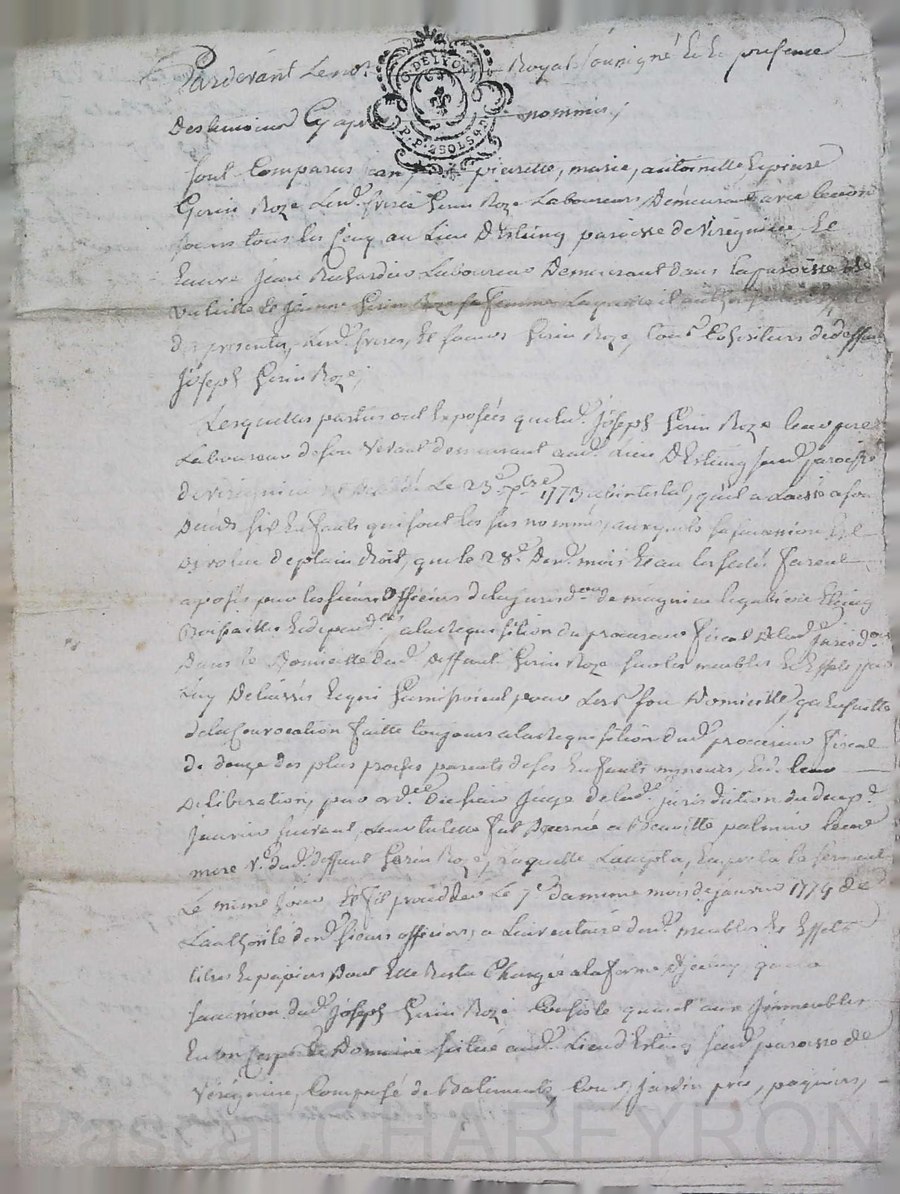 Pardevant Le no Royal soussigné Et En presence
Des temoins Cy apr nommés
G. DE LYON
P.P. 2SOLS 4D
sont Comparus pierette, marie, antoinette Et pierre
Gerin Roze Lesd. freres Gerin Roze Laboureurs Demeurant avec leurs
soeurs tous les Cinq au Lieu D'Esting paroisse de Verégnieu, Et
Encore jean Richardier Laboureur Demeurant dans la paroisse de
et jeanne Gerin Roze sa femme Laquelle il authorise
Des presentes, Lesd. freres, Et soeurs Gerin Roze, Cohéritiers de deffunt
joseph Gerin Roze;
Lesquelles parties ont Exposées que led. joseph Gerin Roze leur pere
Laboureur de son Vivant demeurant aud. Lieu D'Esting susd. paroisse
de Le 23e 1773 abintestat, qu'il a Laissé a son
Deceds six Enfants qui sont les sus nommés, auxquels sa succession Est
devolue de plain droit, que le 28e Dud. mois Et an les scellés furent
aposés par les sieurs Officiers de la jurisdon de
Et dependces, a la Requisition du procureur fiscal de lad. jurisdon
Dans le Domicille dud. deffunt Gerin Roze sur les meubles Et Effets par
Luy Delaissés Et qui garnissoient pour Lors son Domicille, qu'Ensuitte
de la Convocation faitte toujours a la Requisition dud. procureur fiscal
de douze des plus proches parents de ses Enfants mineurs, Et leur
Deliberation, par ordce Du sieur juge de lad. jurisdiction du
janvier suivant, Leur tutelle fut Decernée a Benoitte palmier leur
mere Ve dud. deffunt Gerin Roze, Laquelle L'accepta, En presta le serment
Le même jour Et fit proceder Le 7e Du même mois de janvier 1774 De
L'authorité desd. sieurs officiers, a L'inventaire desd. meubles Et Effets
titres Et papiers Dont Elle Resta Chargée a la forme que la
succession dud. joseph Gerin Roze Consiste quant aux jmmeubles
En un Corps de Domaine situé aud. Lieu d'Esting susd. paroisse de
Verégnieu, Composé de Batiments, Cour, jardin, prés, paquiers,
Pascal CHAREYRON